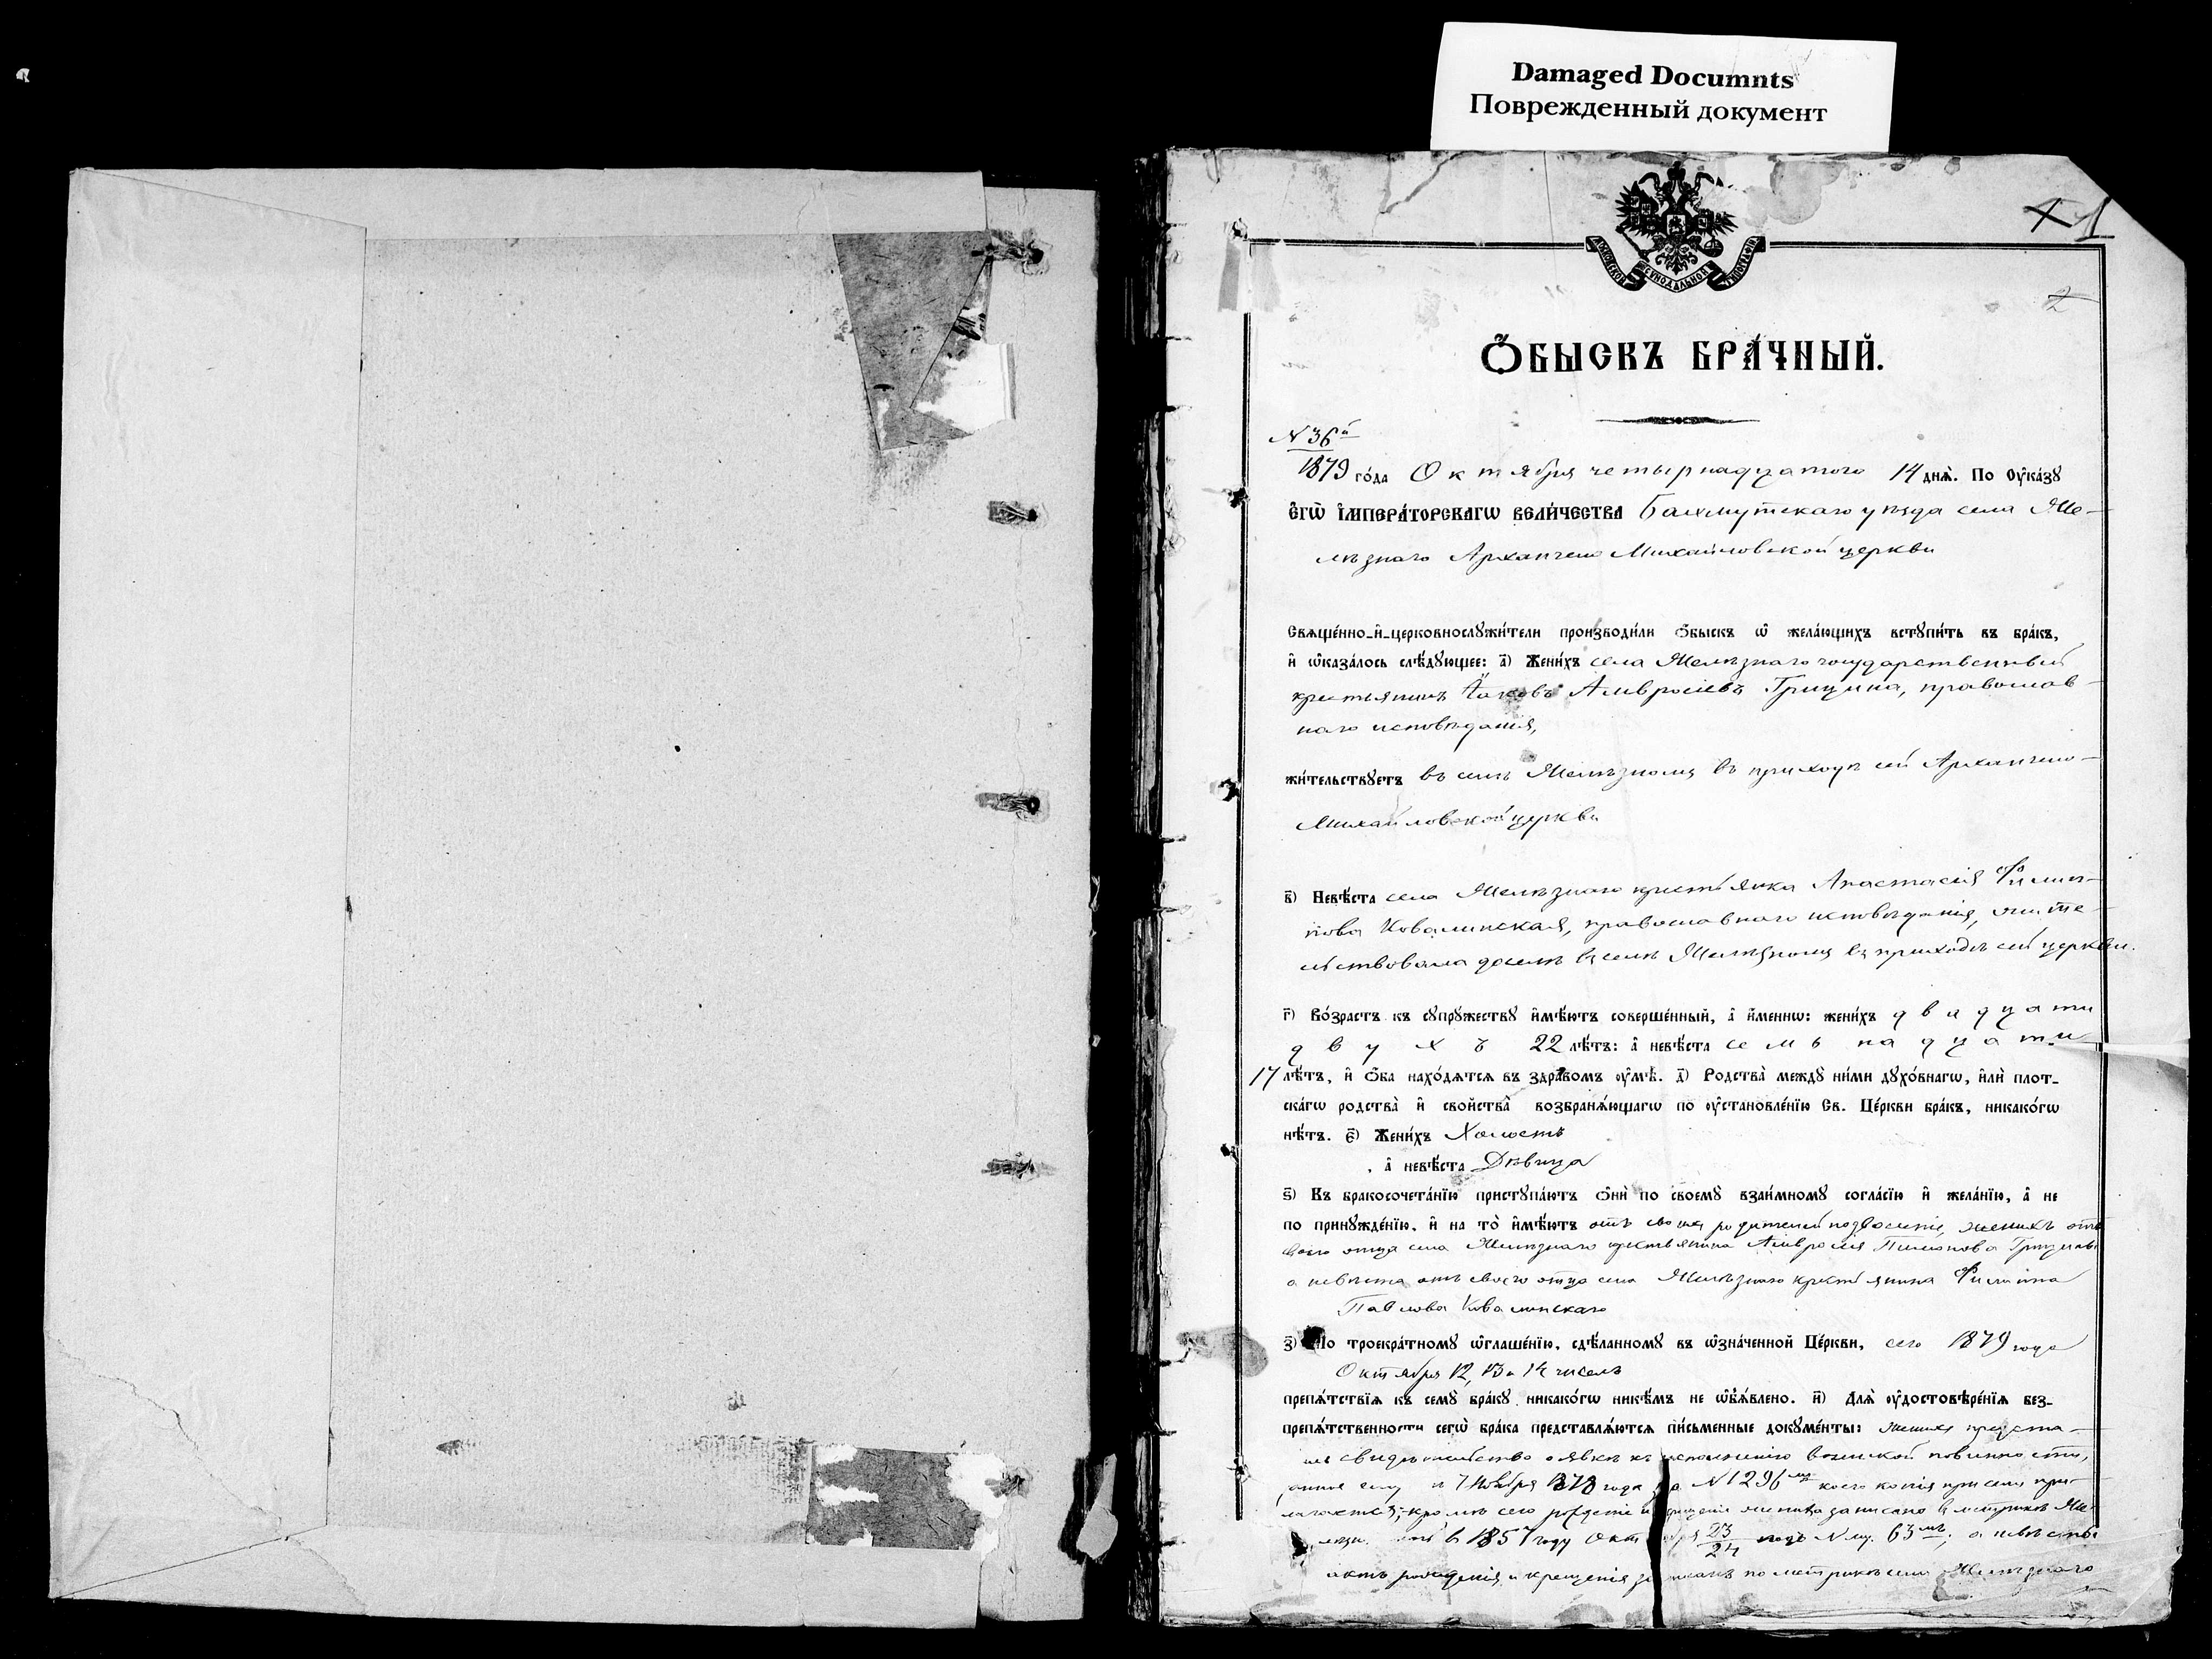 Damaged Documnts
Поврежденный документ
1
2
МОСКОВСКОЙ СѴНОДАЛЬНОЙ ТИПОГРАФІИ
Ѻ҆БЫСКЪ БРА́ЧНЫЙ.
N 36й
1879 го́да Октября четырнадцатого 14 днѧ̀. По Оу҆ка́зꙋ
Є҆гѡ̀ І҆мпера́торскагѡ вели́чества Бахмутскаго уѣзда села Же-
лѣзнаго Архангело Михайловской церкви
Свѧще́нно-и҆-церковнослꙋжи́тели производи́ли ѻ҆быскъ ѡ҆ жела́ющихъ встꙋпи́ть въ бра́къ,
и҆ ѡ҆каза́лось слѣ́дꙋющее: а҃) Жени́хъ села Желѣзнаго государственный
крестьянинъ Іаковъ Амвросіевъ Грицина, православ-
наго исповѣданія,
жи́тельствꙋетъ въ селѣ Желѣзномъ въ приходѣ сей Архангело-
Михайловской церкви
в҃) Невѣ́ста села Желѣзнаго крестьянка Анастасія Филип-
пова Ковалинская, православнаго исповѣданія, жите-
льствовала доселѣ въ селѣ Желѣзномъ въ приходѣ сей церкви.
г҃) Во́зрастъ къ сꙋпрꙋжествꙋ и҆мѣ́ютъ соверше́нный, а҆ и҆́меннѡ: жени́хъ двадцати
двухъ 22 лѣ́тъ: а҆ невѣ́ста семьнадцати
17 лѣ́тъ, и҆ ѻ҆́ба нахо́дѧтсѧ въ здра́вомъ ᲂу҆мѣ̀. д҃) Родства̀ междꙋ ни́ми дꙋхо́внагѡ, и҆лѝ плот-
ска́гѡ родства̀ и҆ свойства̀ возбранѧ́ющагѡ по ᲂу҆становле́нїю Св. Це́ркви бра́къ, никако́гѡ
нѣ́тъ. є҃) Жени́хъ Холостъ
, а҆ невѣ́ста Дѣвица
ѕ҃) Къ бракосочета́нїю пристꙋпа́ютъ ѻ҆нѝ по своемꙋ̀ взаи́мномꙋ согла́сїю и҆ жела́нїю, а҆ не
по принꙋжде́нїю, и҆ на то̀ и҆мѣ́ютъ отъ своихъ родителей позволеніе, женихъ отъ
своего отца села Желѣзнаго крестьянина Амвросія Грицины
а невѣста отъ своего отца села Желѣзнаго крестьянина Филиппа
Павлова Ковалинскаго
з҃) По троекра́тномꙋ ѡ҆глаше́нїю, сдѣ́ланномꙋ въ ѡ҆зна́ченной Це́ркви, сего 1879 года
Октября 12, 13 и 14 чиселъ
препѧ́тствїѧ къ семꙋ̀ бра́кꙋ никако́гѡ никѣ́мъ не ѡ҆б̾ѧ́влено. и҃) Длѧ̀ ᲂу҆достовѣре́нїѧ без-
препѧ́тственности сегѡ̀ бра́ка представлѧ́ютсѧ пи́сьменные докꙋме́нты: женихъ предста-
свидѣтельство о явкѣ къ исполненію воинской повинности,
данное ему 7 Ноября 1878 года за N 1296мъ коего копія при семъ при-
лагается; кромѣ сего рожденіе и крещеніе жениха записано въ метрикѣ Же-
въ 1857 году Октября 23/24 подъ 63мъ; а невѣсты
актъ рожденія и крещенія записанъ по метрикѣ села Желѣзнаго